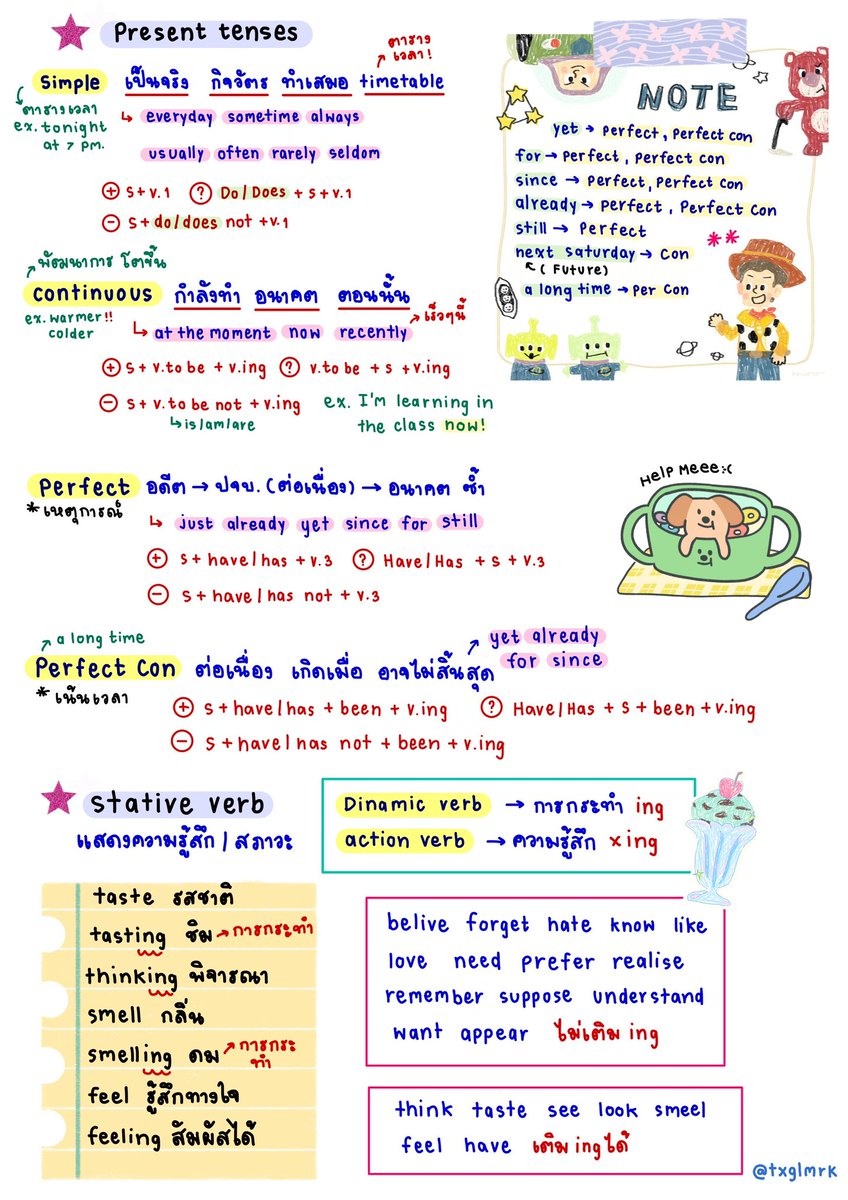 Present tenses
ตาราง
เวลา!
Simple เป็นจริง กิจวัตร ทำเสมอ timetable
ตารางเวลา
ex. tonight
at 7 pm.
↳ everyday sometime always
usually often rarely seldom
+ S+v.1 ? Do/Does + s+v.1
- S+do/does not +v.1
NOTE
yet → perfect, Perfect con
for → Perfect, Perfect con
since → Perfect, Perfect con
already → perfect, Perfect Con
still → Perfect
next saturday → Con
(Future)
a long time → Per Con
**
พัฒนาการ โตขึ้น
continuous กำลังทำ อนาคต ตอนนั้น
ex. warmer!!
colder
↳ at the moment now recently → เร็วๆนี้
+ S+ v.to be + v.ing ? v.to be + s +v.ing
- S+ v.to be not +v.ing
↳ is/am/are
ex. I'm learning in
the class now!
Perfect อดีต → ปจบ. (ต่อเนื่อง) → อนาคต ซ้ำ
* เหตุการณ์
↳ just already yet since for still
+ s + have/has + v.3 ? Have/Has + s + v.3
- s + have/has not + v.3
Help Meee:(
a long time
Perfect Con ต่อเนื่อง เกิดเมื่อ อาจไม่สิ้นสุด
yet already
for since
* เน้นเวลา
+ s + have/has + been + v.ing ? Have/Has + s + been +v.ing
- s + have/has not + been + v.ing
Stative verb
แสดงความรู้สึก / สภาวะ
Dinamic verb → การกระทำ ing
action verb → ความรู้สึก × ing
taste รสชาติ
tasting ชิม → การกระทำ
thinking พิจารณา
smell กลิ่น
smelling ดม → การกระ
ทำ
feel รู้สึกทางใจ
feeling สัมผัสได้
belive forget hate know like
love need prefer realise
remember suppose understand
want appear ไม่เติม ing
think taste see look smeel
feel have เติม ing ได้
@txglmrk